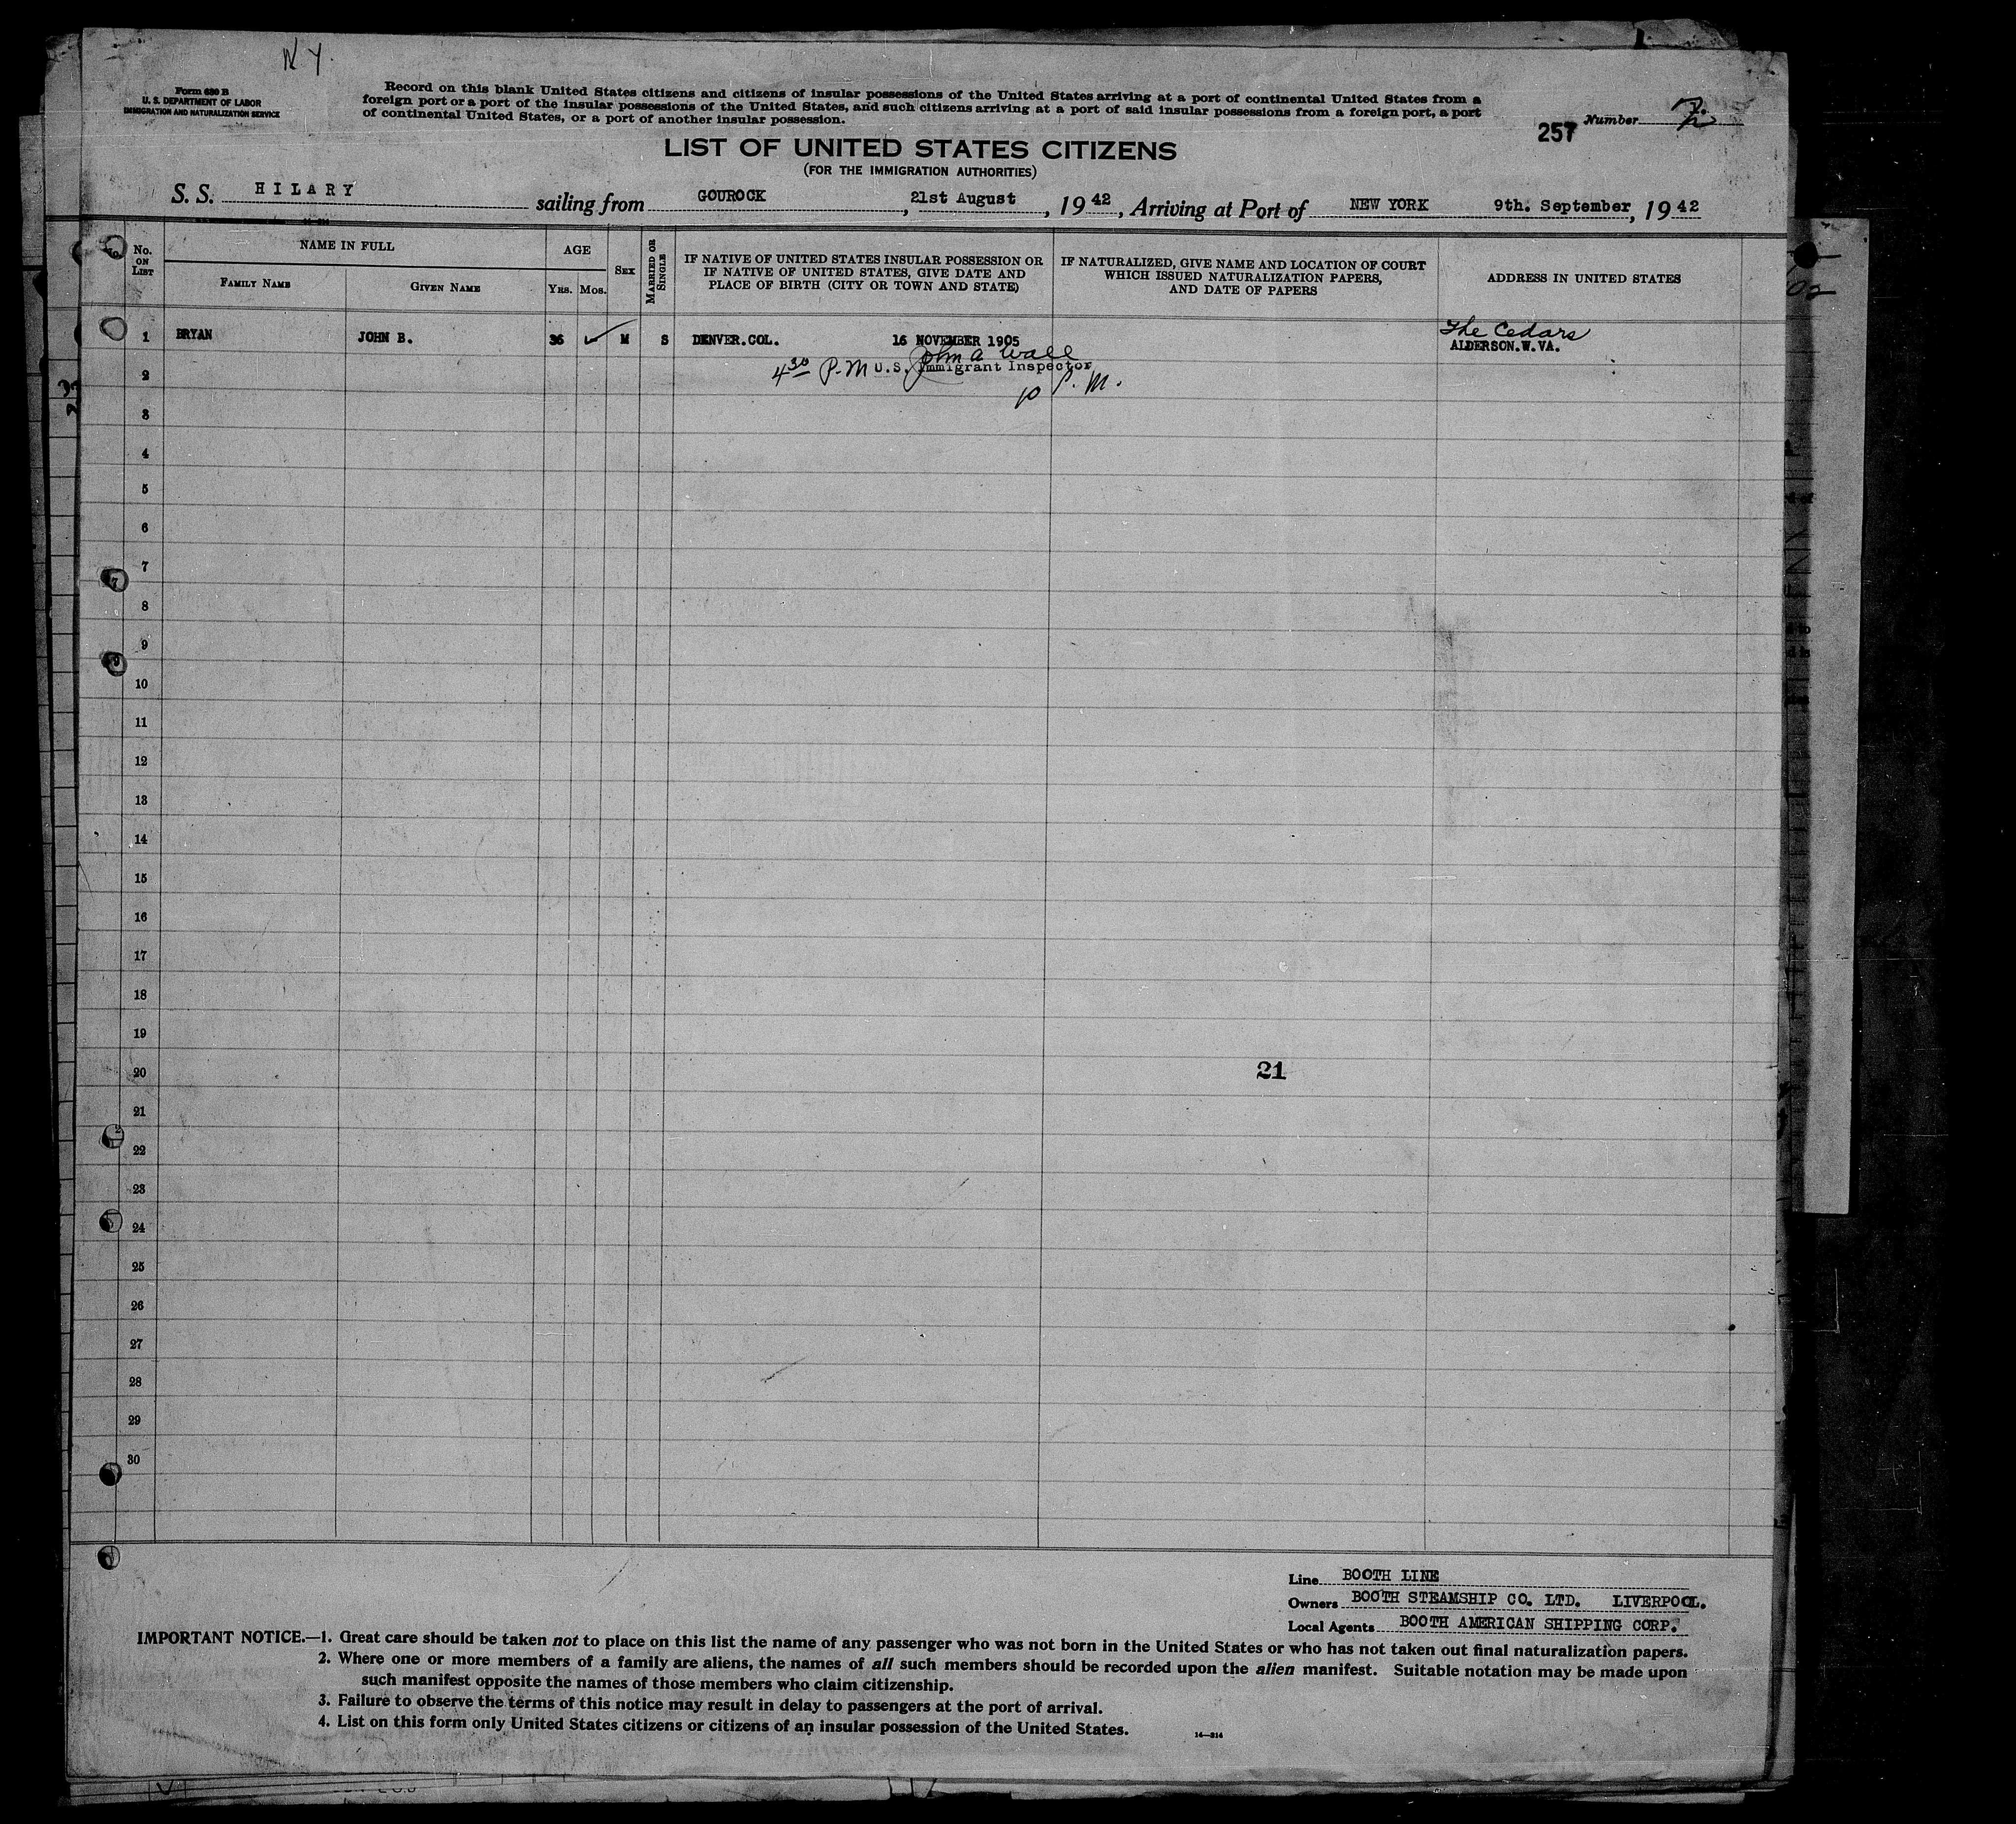 N Y.
Form 630 B
U. S. DEPARTMENT OF LABOR
IMMIGRATION AND NATURALIZATION SERVICE
Record on this blank United States citizens and citizens of insular possessions of the United States arriving at a port of continental United States from a
foreign port or a port of the insular possessions of the United States, and such citizens arriving at a port of said insular possessions from a foreign port, a port
of continental United States, or a port of another insular possession.
257 Number
LIST OF UNITED STATES CITIZENS
(FOR THE IMMIGRATION AUTHORITIES)
S. S. HILARY sailing from GOUROCK, 21st August, 1942, Arriving at Port of NEW YORK 9th. September, 1942
No. ON LIST
NAME IN FULL
FAMILY NAME
GIVEN NAME
AGE
YRS. MOS.
SEX
MARRIED OR SINGLE
IF NATIVE OF UNITED STATES INSULAR POSSESSION OR
IF NATIVE OF UNITED STATES, GIVE DATE AND
PLACE OF BIRTH (CITY OR TOWN AND STATE)
IF NATURALIZED, GIVE NAME AND LOCATION OF COURT
WHICH ISSUED NATURALIZATION PAPERS,
AND DATE OF PAPERS
ADDRESS IN UNITED STATES
The Cedars
1 BRYAN JOHN B. 36 M S DENVER.COL. 16 NOVEMBER 1905 ALDERSON.W.VA.
John A Wall
2 4 30 P.M U.S. Immigrant Inspector
10 P.M.
3
4
5
6
7
8
9
10
11
12
13
14
15
16
17
18
19
20
21
21
22
23
24
25
26
27
28
29
30
Line BOOTH LINE
Owners BOOTH STEAMSHIP CO. LTD. LIVERPOOL.
Local Agents BOOTH AMERICAN SHIPPING CORP.
IMPORTANT NOTICE.—1. Great care should be taken not to place on this list the name of any passenger who was not born in the United States or who has not taken out final naturalization papers.
2. Where one or more members of a family are aliens, the names of all such members should be recorded upon the alien manifest. Suitable notation may be made upon
such manifest opposite the names of those members who claim citizenship.
3. Failure to observe the terms of this notice may result in delay to passengers at the port of arrival.
4. List on this form only United States citizens or citizens of an insular possession of the United States.
14—214